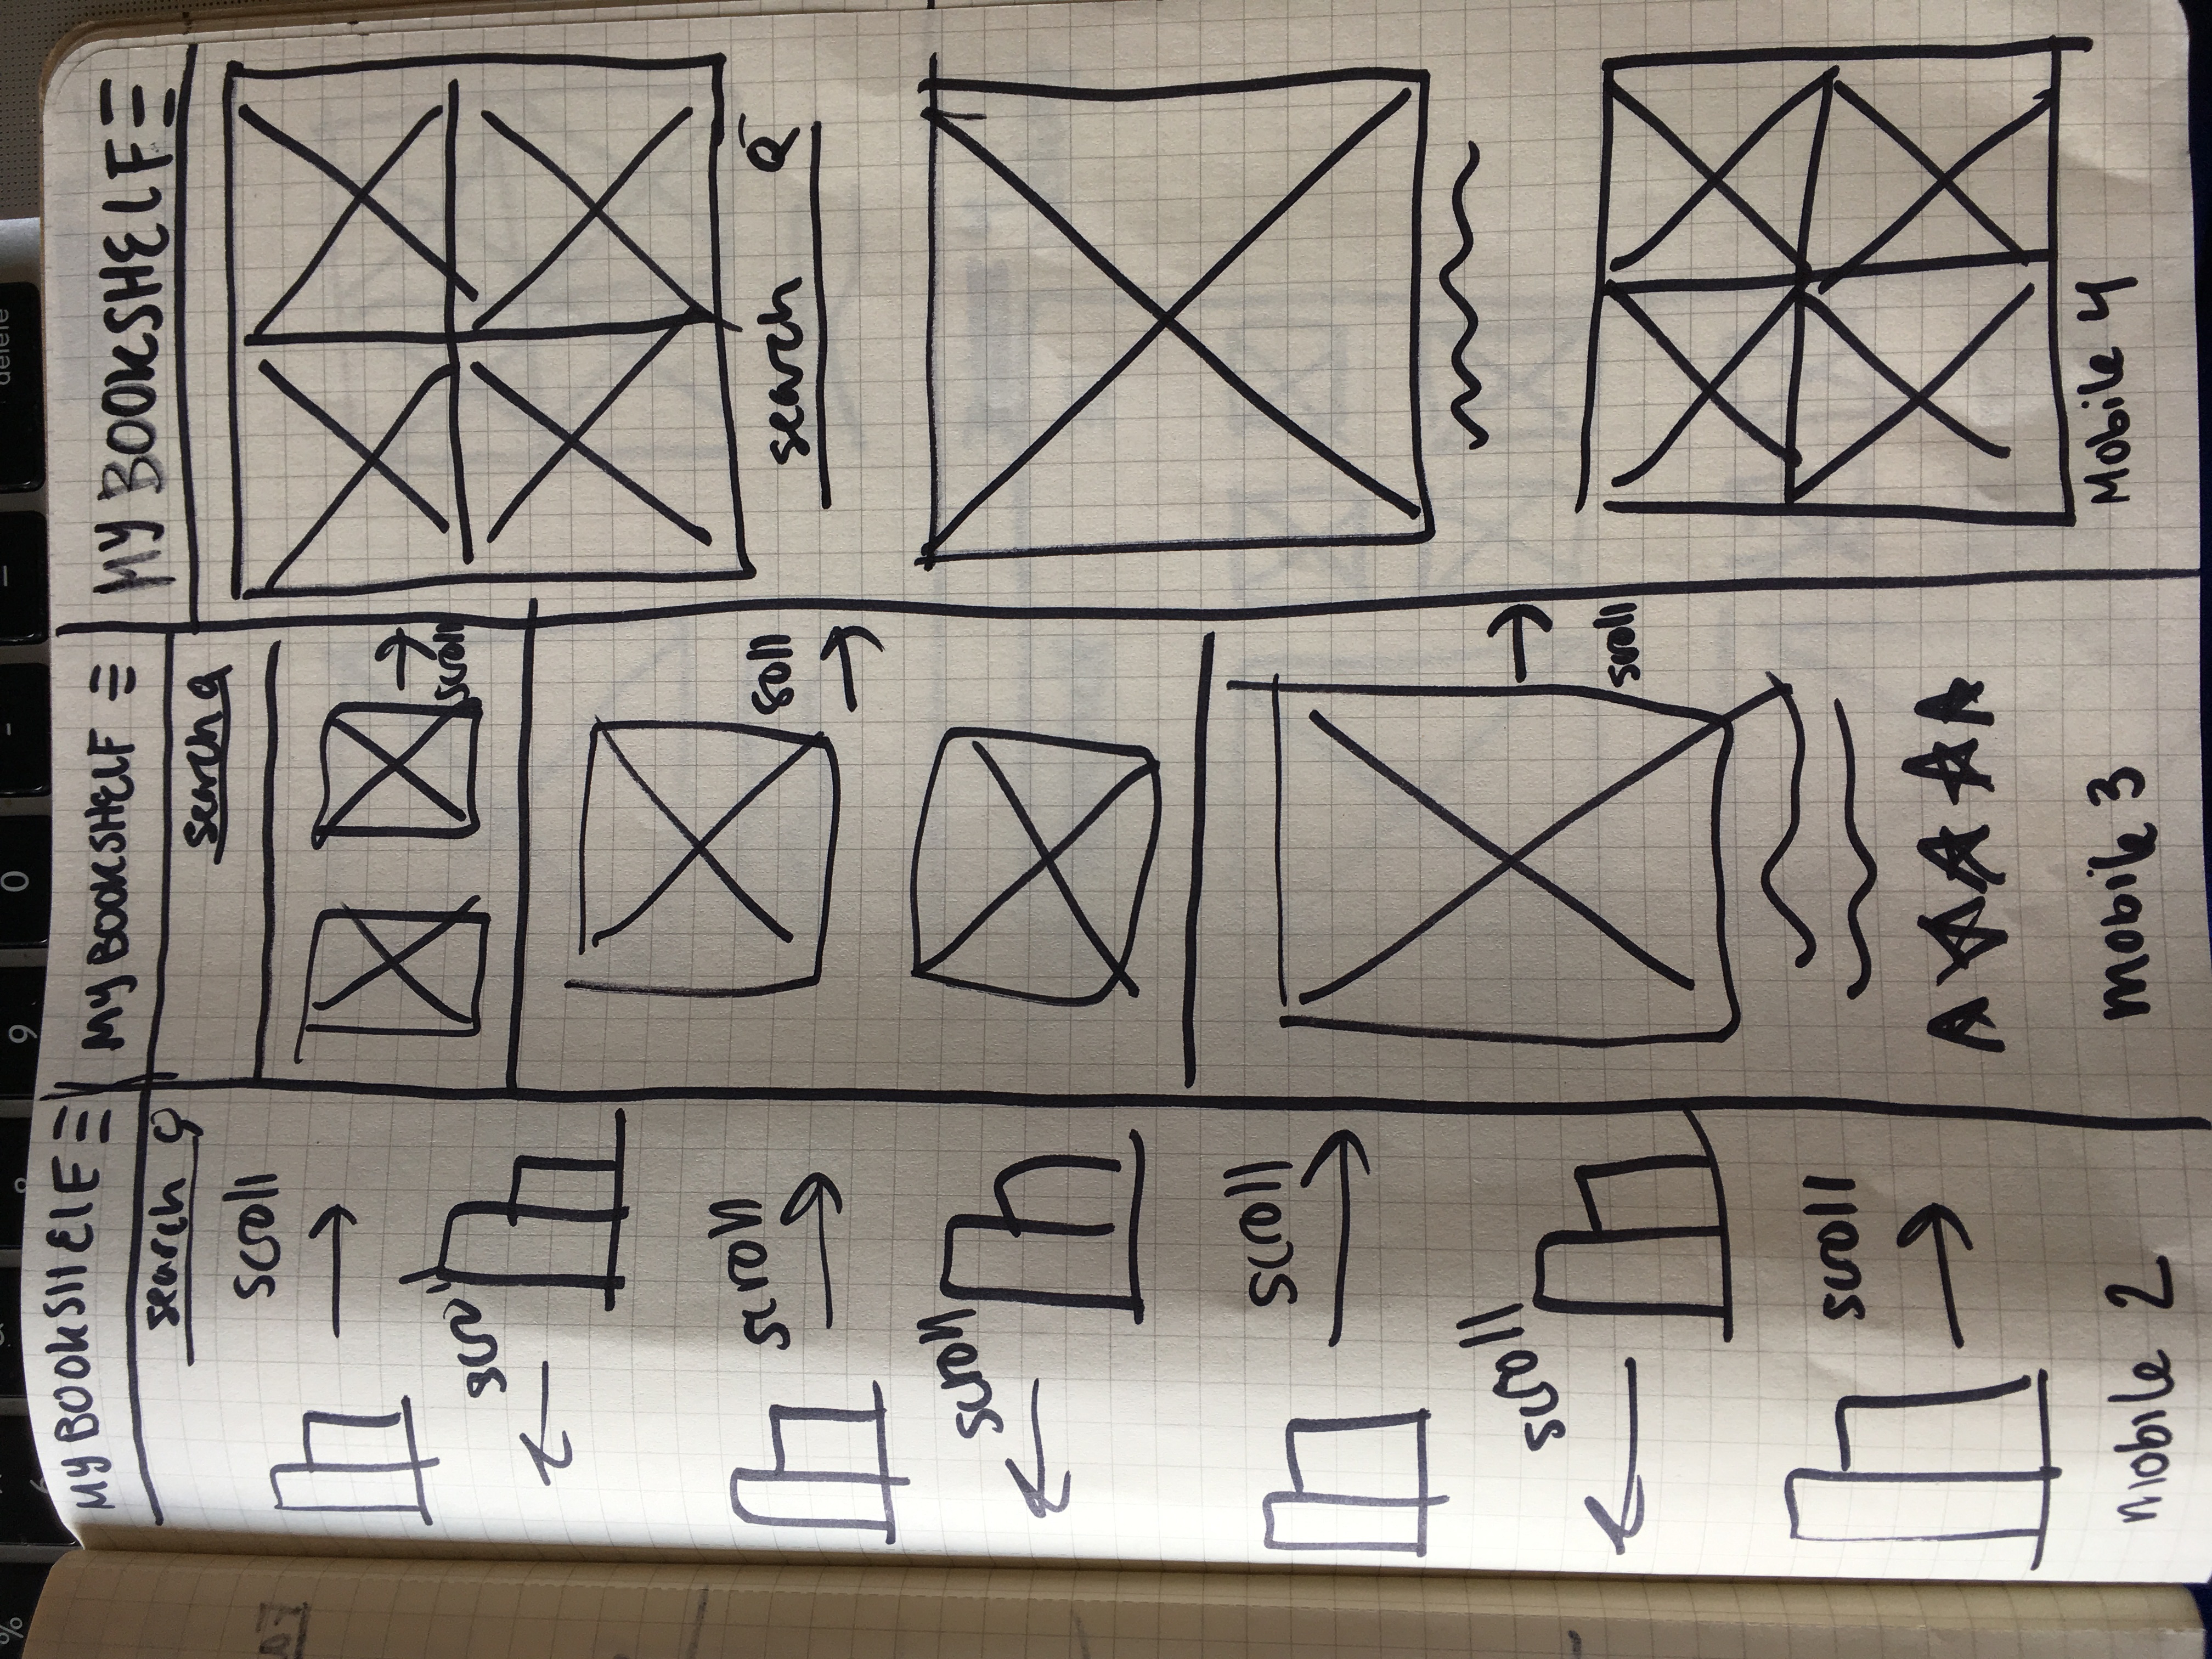 % 9 0 - delete
MY BOOKSHELF
search
scroll
scroll
scroll
scroll
scroll
scroll
scroll
mobile 2
MY BOOKSHELF
search
scroll
soll
scroll
mobile 3
MY BOOKSHELF
search
Mobile 4